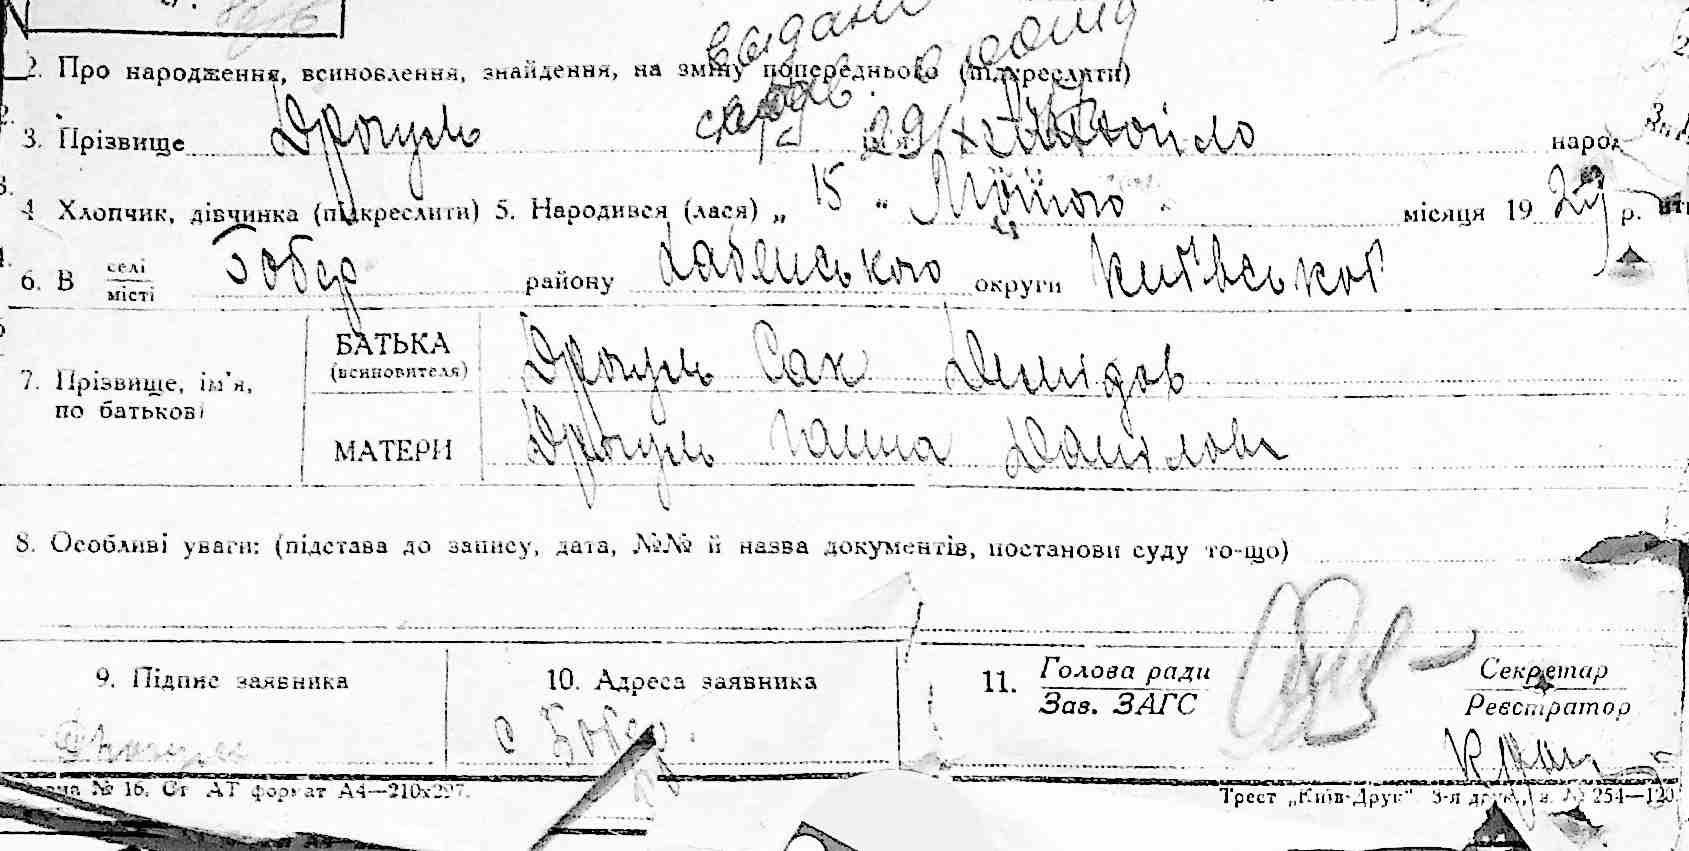 видано
2. Про народження, всиновлення, знайдення, на зміну попереднього (підкреслити)
3. Прізвище Дрочуль Михайло народ
4 Хлопчик, дівчинка (підкреслити) 5. Народився (лася) „ 15 " Лютого місяця 1929 р.
6. В селі місті Бобер району округи Київської
7. Прізвище, ім'я, по батькові
БАТЬКА (всиновителя) Дрочуль Сак Демідов
МАТЕРИ Дрочуль Ганна Данілов
8. Особливі уваги: (підстава до запису, дата, №№ й назва документів, постанови суду то-що)
9. Підпис заявника
10. Адреса заявника
с Бобер.
11. Голова ради
Зав. ЗАГС
Секретар
Реєстратор
№ 16. Ст АТ формат А4—210х297.
Трест „Київ-Друк". 3-я друк., з. № 254—120